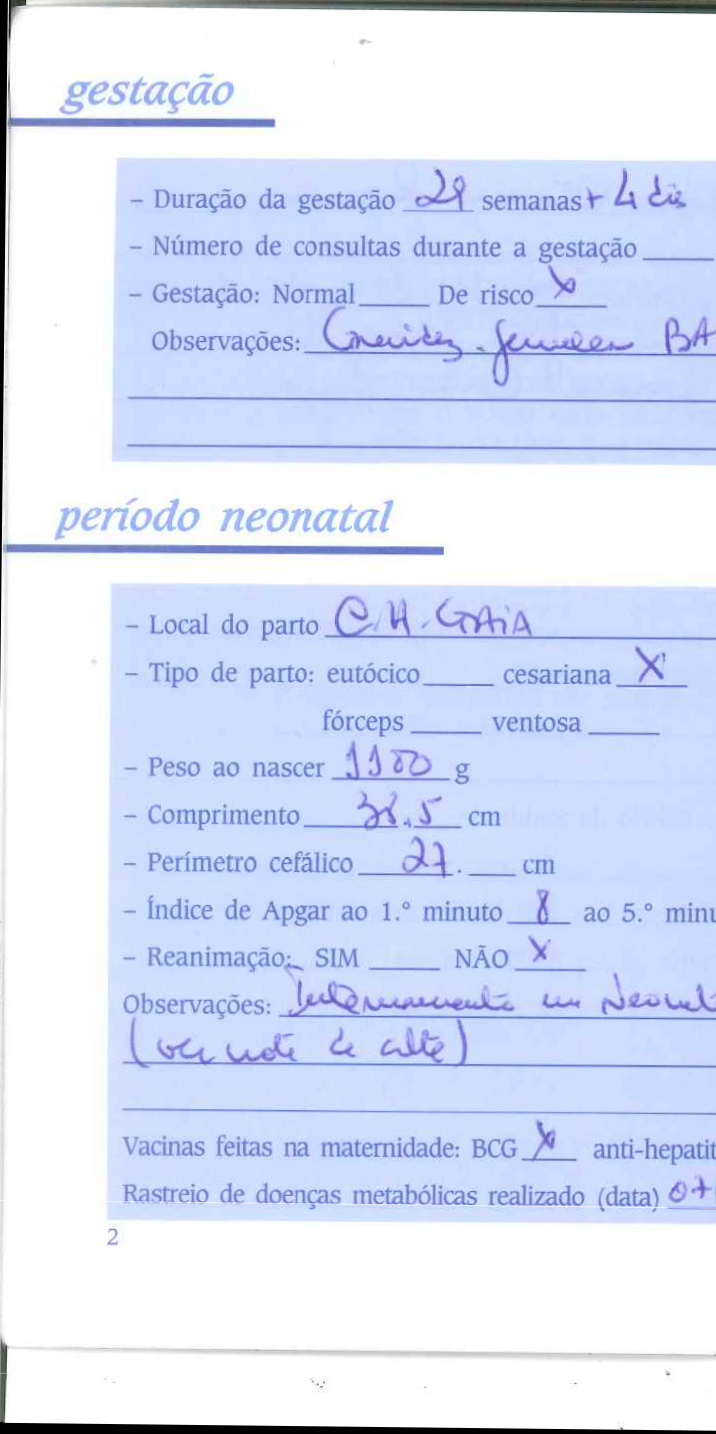 gestação
– Duração da gestação 29 semanas + 4 dias
– Número de consultas durante a gestação
– Gestação: Normal De risco X
Observações: Gravidez gemelar BA
período neonatal
– Local do parto C.H. GAIA
– Tipo de parto: eutócico cesariana X
fórceps ventosa
– Peso ao nascer 1180 g
– Comprimento 38.5 cm
– Perímetro cefálico 27. cm
– Índice de Apgar ao 1.º minuto 8 ao 5.º minu
– Reanimação: SIM NÃO X
Observações: Internamento em Neonat
(ver nota de alta)
Vacinas feitas na maternidade: BCG X anti-hepatit
Rastreio de doenças metabólicas realizado (data) 07
2